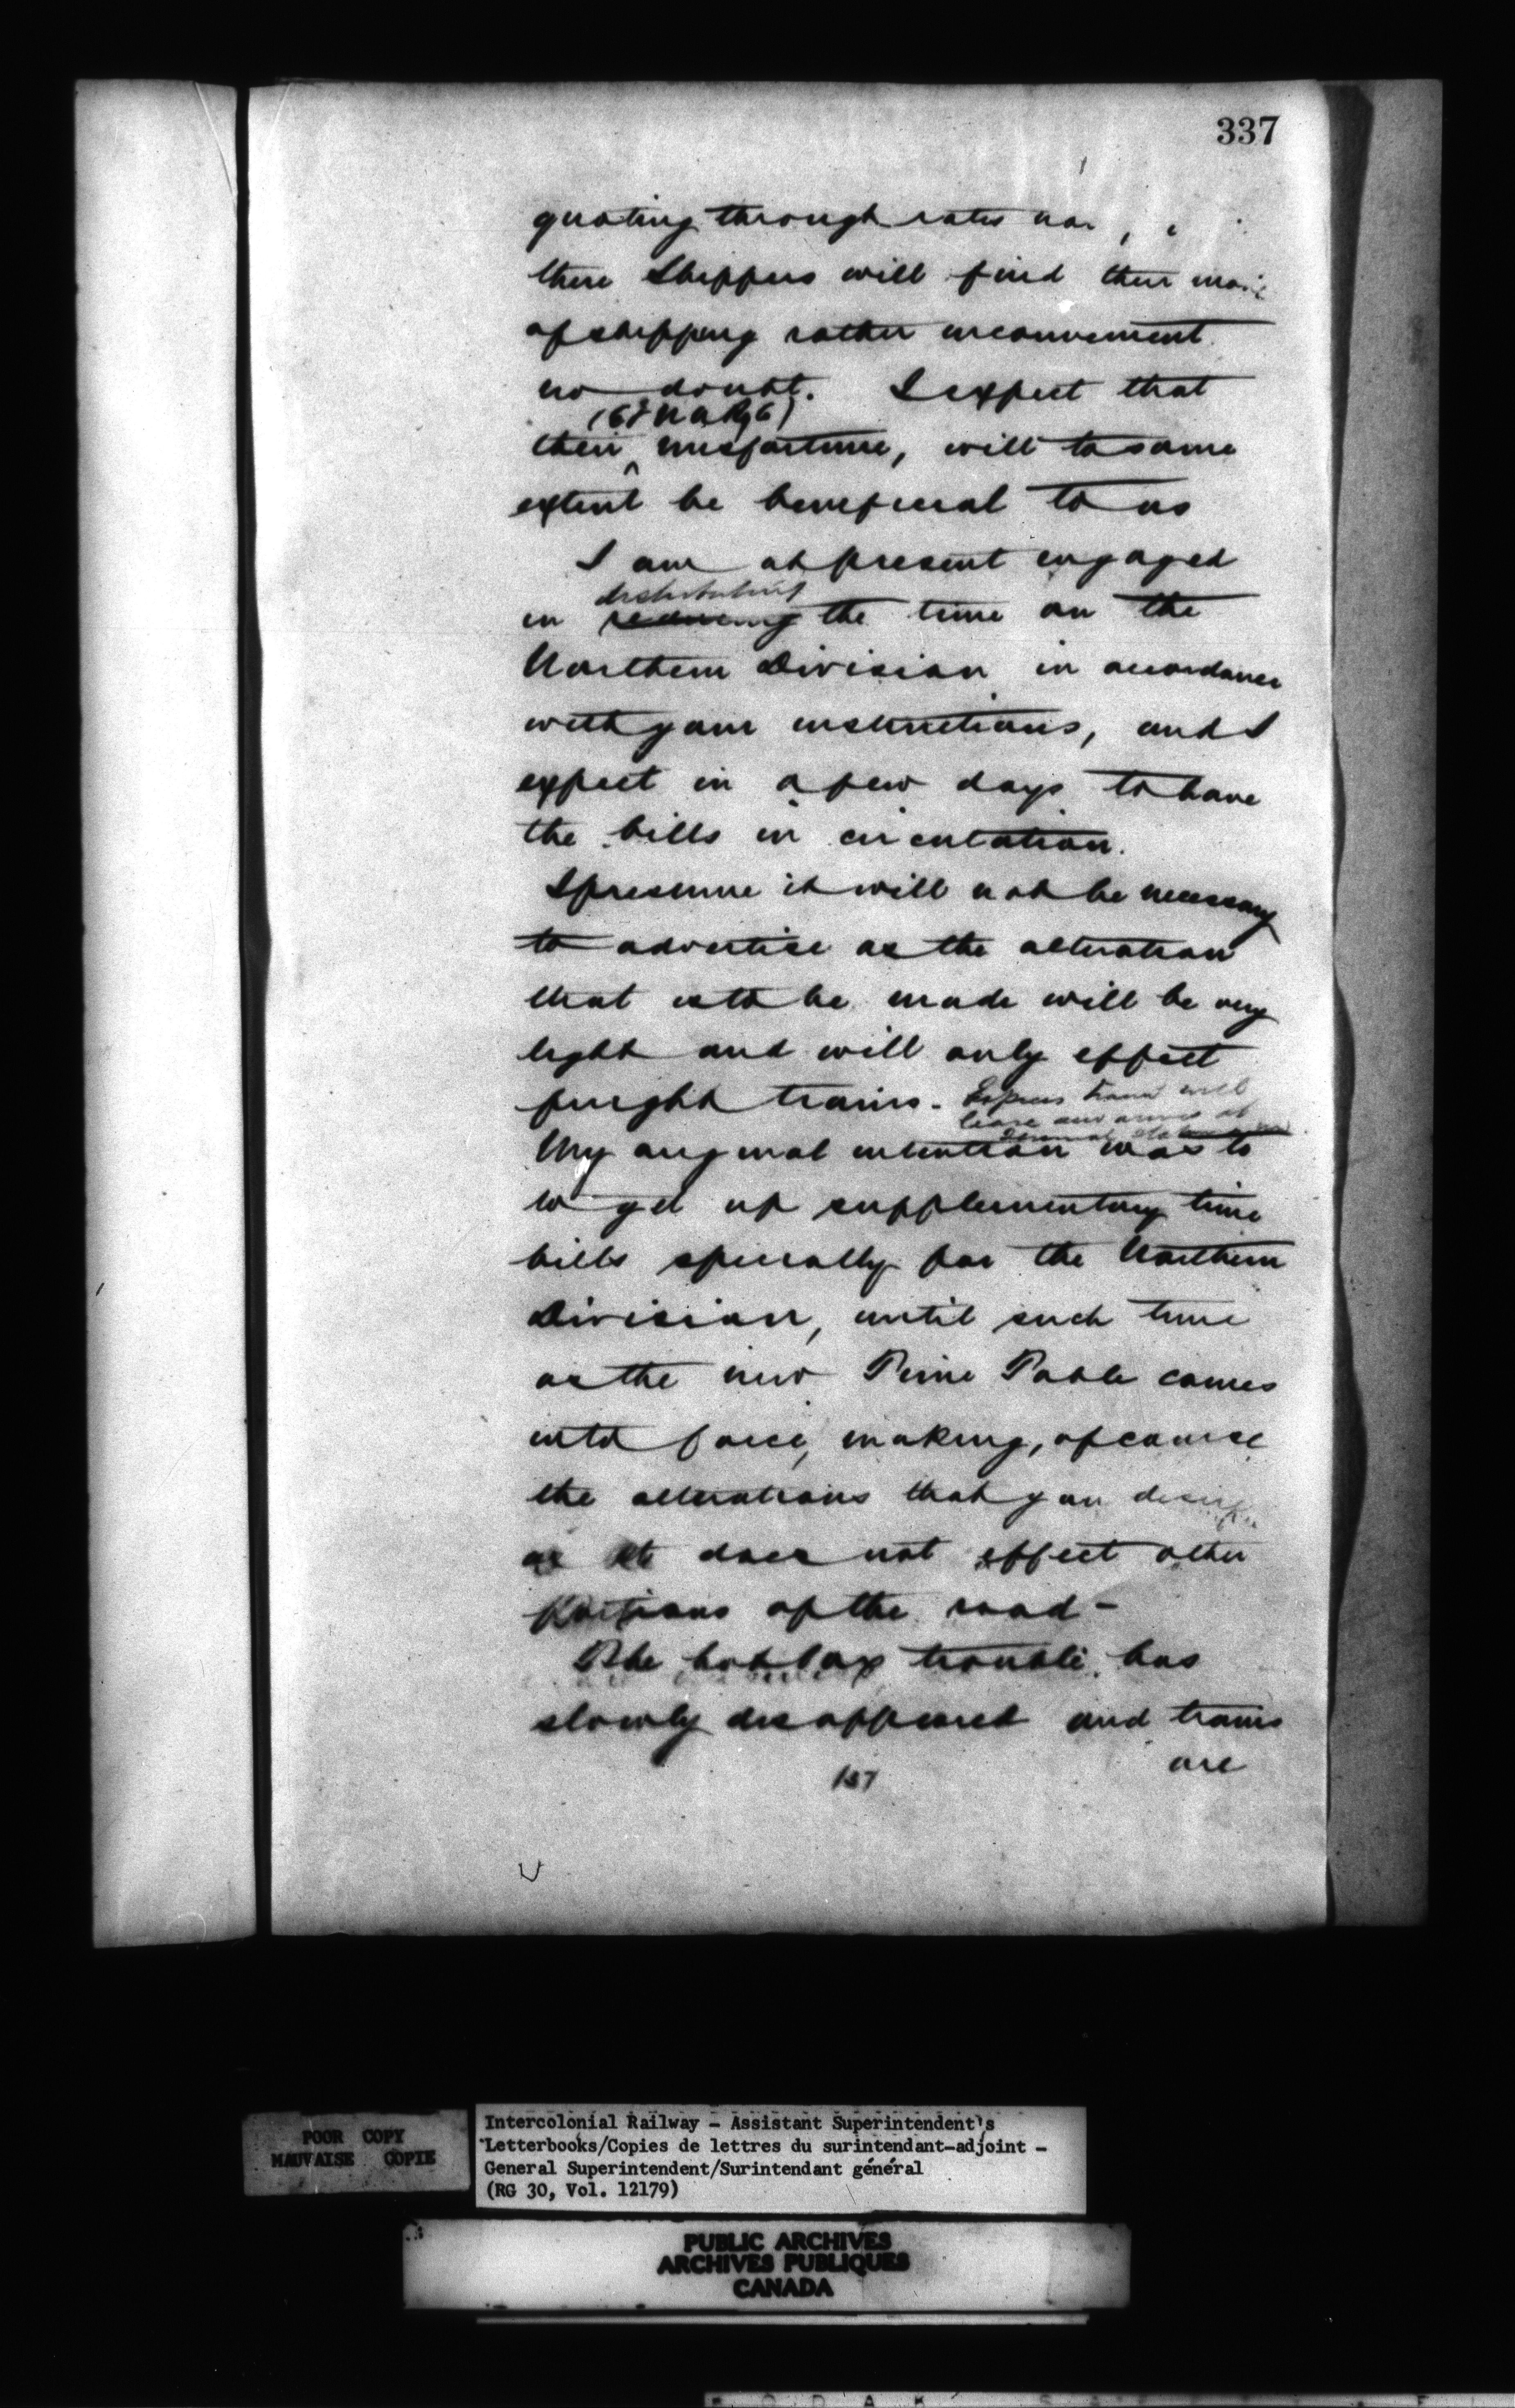 337
quoting through rates
there Shippers will find their
of shipping rather inconvenient
no doubt. I expect that
their misfortune, will to some
extent be beneficial to us
I am at present engaged
distributing
in reducing the time on the
Northern Division in accordance
with your instructions, and I
expect in a few days to have
the bills in circulation.
I presume it will not be necessary
to advertise as the alteration
that is to be made will be very
light and will only effect
freight trains. Express trains will
leave and arrive at
My original intention was to
to get up supplementary time
bills specially for the Northern
Division, until such time
as the new Time Table comes
into force, making, of course
the alterations that you desire
as it does not effect other
portions of the road -
The hot box trouble has
slowly disappeared and trains
are
137
POOR COPY
MAUVAISE COPIE
Intercolonial Railway - Assistant Superintendent's
Letterbooks/Copies de lettres du surintendant-adjoint -
General Superintendent/Surintendant général
(RG 30, Vol. 12179)
PUBLIC ARCHIVES
ARCHIVES PUBLIQUES
CANADA